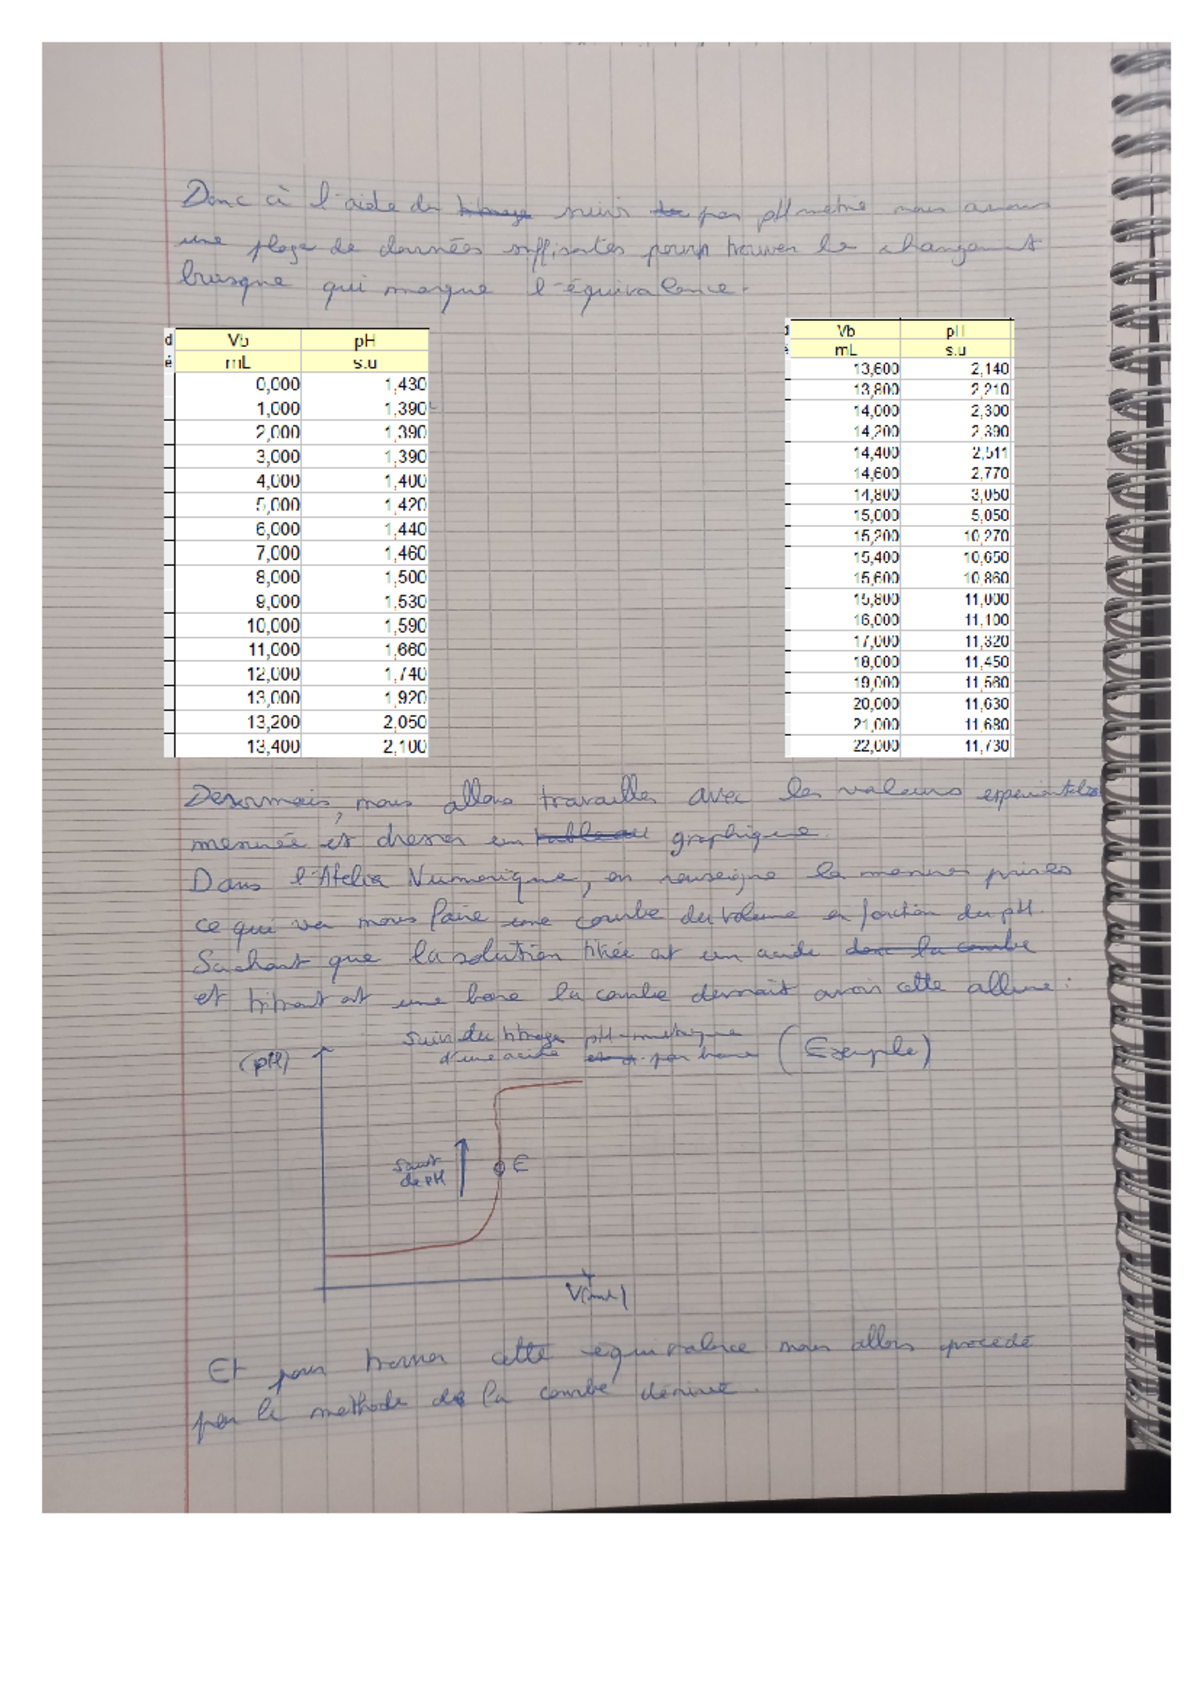 Donc à l'aide du titrage suivis par pH mètre nous avons
une plage de données suffisantes pour trouver le changement
brusque qui marque l'équivalence.
d Vb pH
é mL s.u
0,000 1,430
1,000 1,390
2,000 1,390
3,000 1,390
4,000 1,400
5,000 1,420
6,000 1,440
7,000 1,460
8,000 1,500
9,000 1,530
10,000 1,590
11,000 1,660
12,000 1,740
13,000 1,920
13,200 2,050
13,400 2,100
d Vb pH
é mL s.u
13,600 2,140
13,800 2,210
14,000 2,300
14,200 2,390
14,400 2,511
14,600 2,770
14,800 3,050
15,000 5,050
15,200 10,270
15,400 10,650
15,600 10,860
15,800 11,000
16,000 11,100
17,000 11,320
18,000 11,450
19,000 11,560
20,000 11,630
21,000 11,680
22,000 11,730
Desormais, nous allons travailler avec les valeurs experimentales
mesurée et dresser un tableau graphique.
Dans l'Atelier Numerique, on renseigne les mesures prises
ce qui va nous faire une courbe du volume en fonction du pH.
Sachant que la solution titrée est un acide donc la courbe
et titrant est une base la courbe devrait avoir cette allure :
Suivi du titrage pH-métrique
d'une acide par base (Exemple)
(pH)
saut
de pH
E
V(mL)
Et pour trouver cette équivalence nous allons procédé
par la méthode de la courbe dérivée.